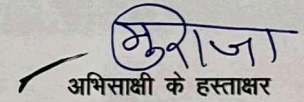 मुराजा
अभिसाक्षी के हस्ताक्षर